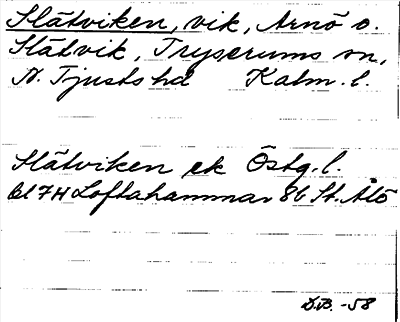 Slätviken, vik, Arnö o.
Slätvik, Tryserums sn,
N. Tjusts hd Kalm. l.
Slätviken ek Östg. l.
Bl 7H Loftahammar 8b St. Ålö
D.B. -58